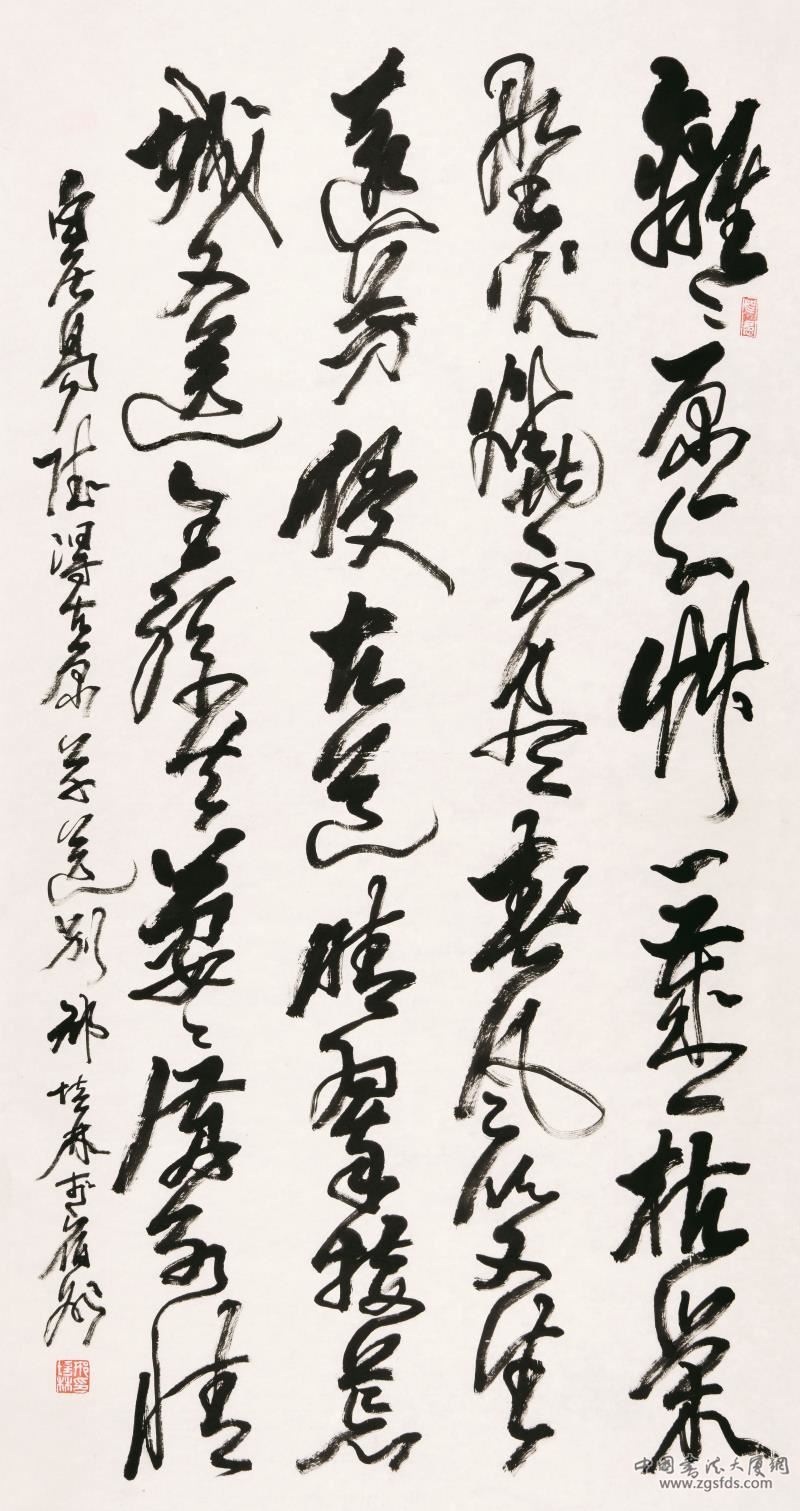 離々原上草一歲一枯榮
野火燒不盡春風吹又生
遠芳侵古道晴翠接荒
城又送王孫去萋々滿別情
白居易賦得古原草送別 邢培林
邢培林印
中國書法大廈網
www.zgsfds.com